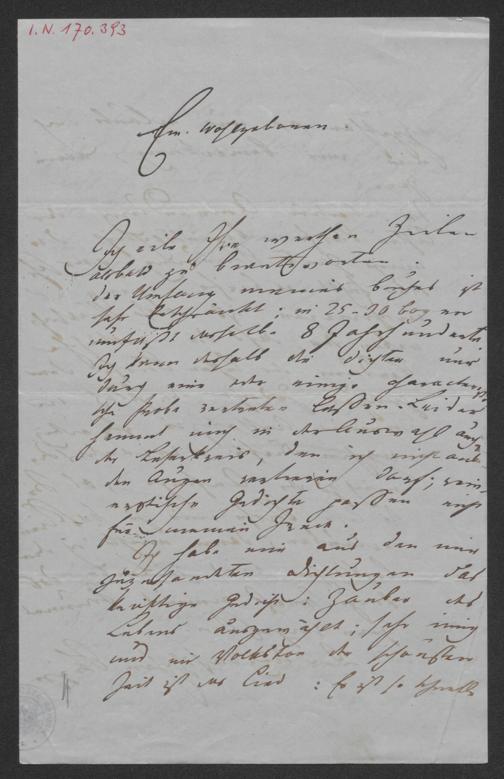 I. N. 170.393
Ew. Wohlgeboren
Ich eile Ihre werthen Zeilen
alsbald zu beantworten.
Der Umfang meines Buches ist
sehr beschränkt; in 25-30 Bogen
umfaßt dasselbe 8 Jahrhunderte.
Ich kann deshalb die Dichter nur
durch eine oder einige characteristi-
sche Probe vertreten lassen. Leider
hemmt mich in der Auswahl auch
der Leserkreis, den ich nicht aus
den Augen verlieren darf; rein
erotische Gedichte passen nicht
für meinen Zweck.
Ich habe mir aus den mir
zugesandten Dichtungen das
kräftige Gedicht: Zauber des
Lebens ausgewählt; sehr innig
und im Volkston der schönsten
Zeit ist das Lied: Es ist so schnell